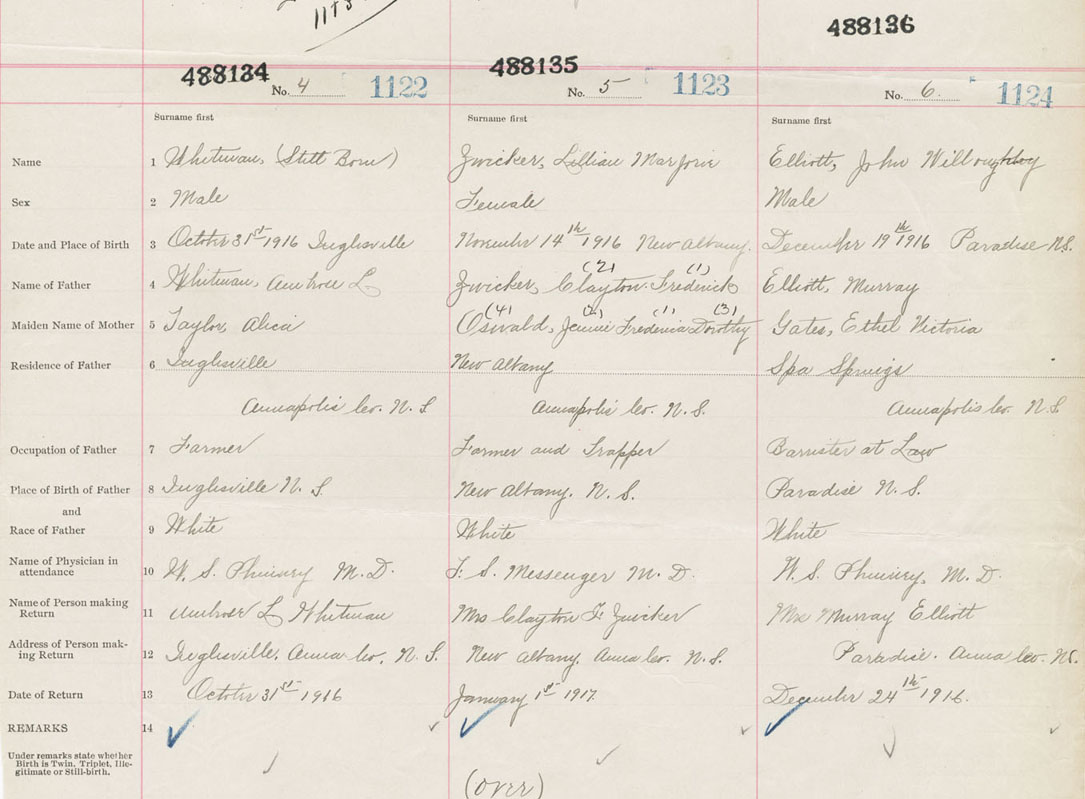 488134 488135 488136
No. 4 1122 No. 5 1123 No. 6. 1124
Surname first Surname first Surname first
Name 1 Whitman, (Still Born) Zwicker, Lillian Marjorie Elliott, John Willoughby
Sex 2 Male Female Male
Date and Place of Birth 3 October 31st 1916 Inglisville November 14th 1916 New Albany. December 19th 1916 Paradise N.S.
(2) (1)
Name of Father 4 Whitman, Ambrose L Zwicker, Clayton Frederick Elliott, Murray
(4) (2) (1) (3)
Maiden Name of Mother 5 Taylor, Alicia Oswald, Jennie Frederica Dorothy Gates, Ethel Victoria
Residence of Father 6 Inglisville New Albany Spa Springs
Annapolis Co. N. S Annapolis Co. N. S. Annapolis Co. N.S
Occupation of Father 7 Farmer Farmer and Trapper Barrister at Law
Place of Birth of Father 8 Inglisville N. S. New Albany. N. S. Paradise N. S.
and
Race of Father 9 White White White
Name of Physician in
attendance 10 W. S. Phinney M. D. F. S. Messenger M. D. W. S. Phinney, M. D.
Name of Person making
Return 11 Ambrose L Whitman Mrs Clayton F. Zwicker Murray Elliott
Address of Person mak-
ing Return 12 Inglisville, Anna Co. N. S. New Albany. Anna Co. N. S. Paradise. Anna Co. N.S.
Date of Return 13 October 31st 1916 January 1st 1917. December 24th 1916.
REMARKS 14
Under remarks state whether
Birth is Twin, Triplet, Ille-
gitimate or Still-birth.
(over)